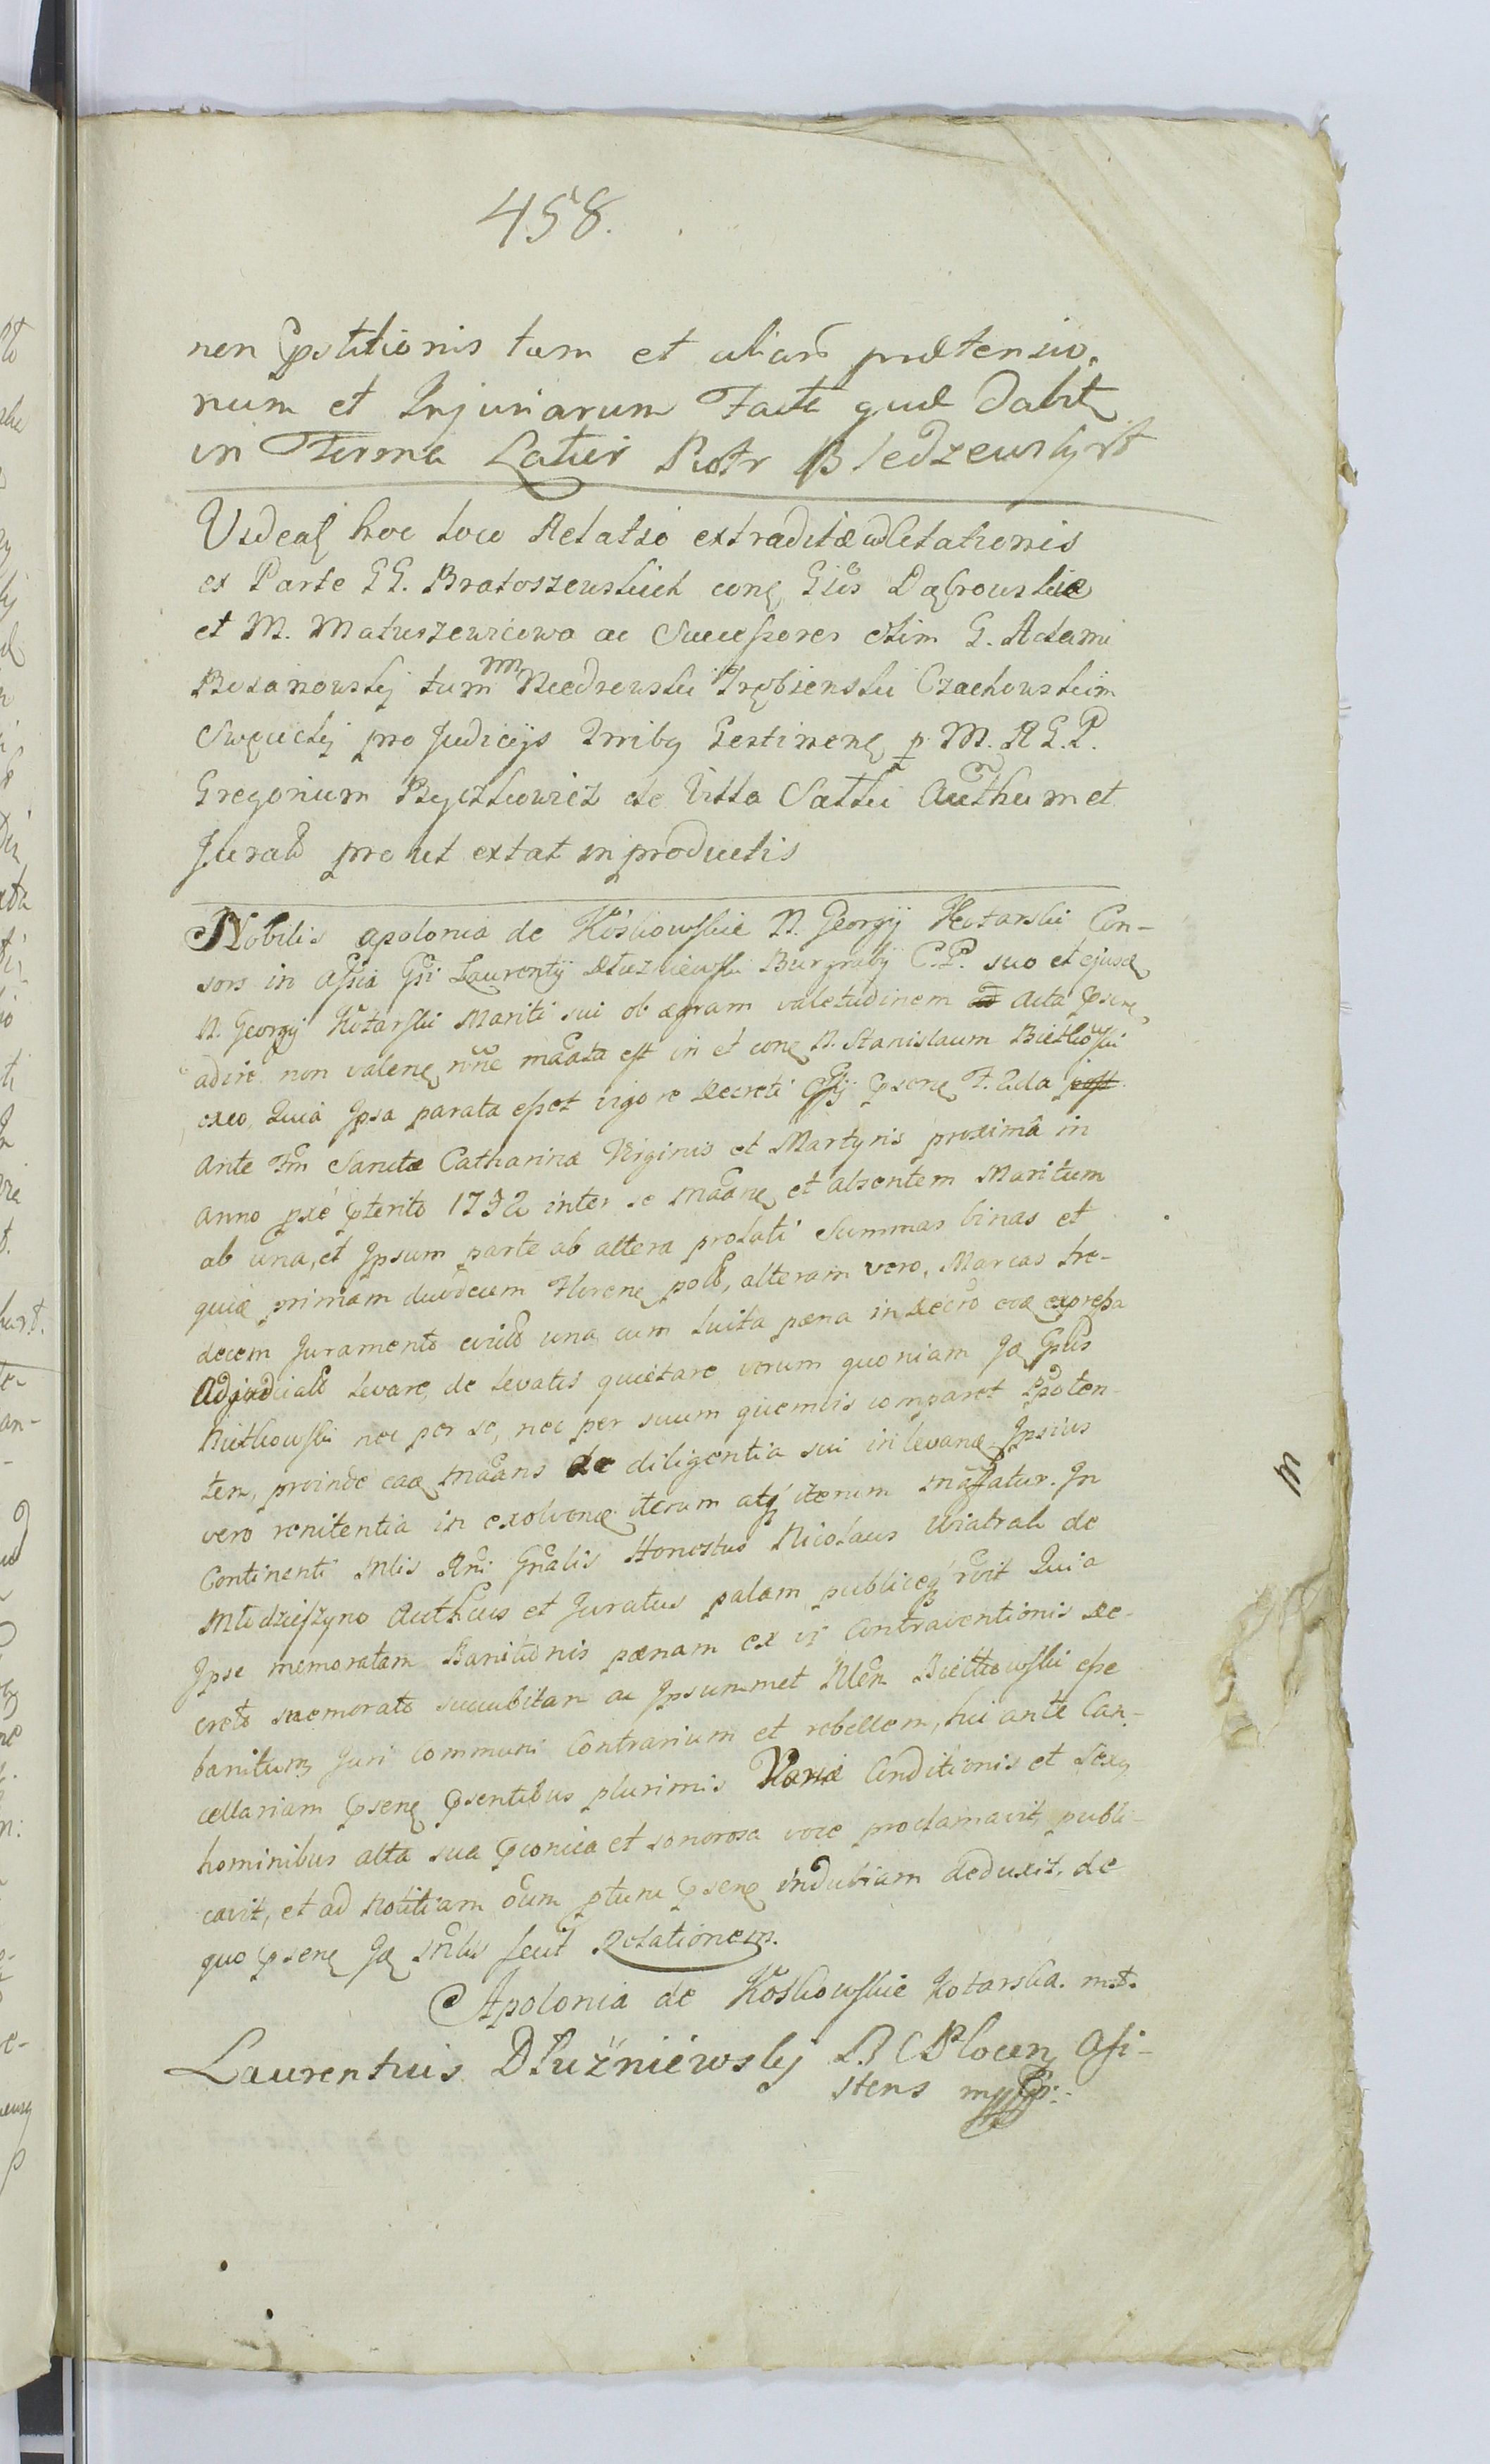 458.
non Ppstitionis tum et aliarũ prætensio,
num et Injuriarum Facti quæ dabit
in Termẽ Latius Piotr Bledzewskj
Videatʒ hoc loco Relatio extraditæ Citationis
ex Parte GG. Bratoszewskich conʒ Gſos Dąbrowskie
et M. Matuszewicowa ac Succeſsores olim G. Adami
Rozanowskj tum Niedrewski Trębienski Czachowskim
Swęcickj pro Judicijs Trribʒ Pertinenʒ p. M. R G. P.
Gregorium Ryczkowicz de Villa Satki Authum et
Juratũ pro ut extat in productis
Nobilis Apolonia de Kośkowſkie N. Georgij Kotarski Con-
sors in Aſsia Gsi Laurentij Dłuzniewſki Burgrabij C.P. suo et ejusdʒ
N. Georgij Kotarſki Mariti sui ob ægram valetudinem Acta Psenʒ
adire non valenʒ nõne maata eſt in et conʒ N. Stanislaum Bietkowſki
exeo, Quia Ipsa parata eſset vigore Decreti Psenʒ F. 2da
Ante Fm Sanctæ Catharinæ Virginis et Martyris proxima in
Anno pxe Pterito 1732 inter se maanʒ et absentem Maritum
ab una, et Ipsum parte ab altera prolati Summas binas et
quid primam duodecim Florenʒ polł, alteram vero, Marcas tre-
decem Juramento evictũ una cum luita pæna in Decro eoa expreſsa
Adjudicatũ levare, de levatis quietare, verum quoniam Jdʒ Gsus
Bietkowſki nec per se, nec per suum quemvis comparet Ppoten-
tem, proinde eadʒ maans de diligentia sui in levandʒ Ipsius
vero renitentia in exolvendʒ iterum atqʒ iterum maſfatur. In
Continenti Mlis Rni Gnalis Honestus Nicolaus Wiatrak de
Młodzieſzyno Authcus et Juratus palam publiceqʒ rõit Quia
Ipse memoratam Banitionis pænam ex vi Contraventionis De-
creto memorato succubitam ac Ipsummet Nlem Bietkowſki eſse
banitum, Juri Communi Contrarium et rebellem, hic ante Can-
cellariam Psenʒ Psentibus plurimis Variæ Conditionis et Sexʒ
hominibus alta sua Pconica et sonorosa voce proclamavit, publi-
cavit, et ad Notitiam oũm ptum Psenʒ indubiam deduxit. de
quo Psenʒ Jdʒ Mlis fecit Relationem.
Apolonia de Kośkowſkie Kotarska. m.t.
Laurentius Dłużniewskj B. C Plocenʒ Aſsi-
stens mpp